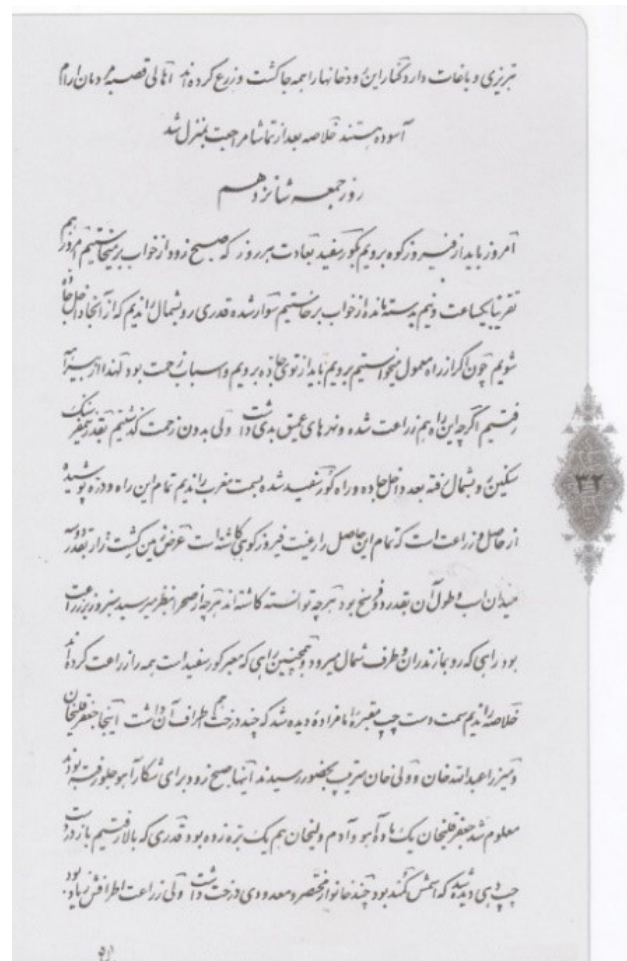 تبریزی و باغات دارد کنار این رودخانها را همه جا کشت و زرع کرده‌اند اهالی قصبه در امان و آرام
آسوده هستند خلاصه بعد از تماشا مراجعت بمنزل شد
روز جمعه شانزدهم
امروز باید از فیروزکوه برویم بگور سفید بعادت هر روز که صبح زود از خواب برمیخاستیم امروز هم
تقریبا یکساعت و نیم بدسته مانده از خواب برخاستیم سوار شده قدری رو بشمال راندیم که از آنجا داخل جاده
شویم چون اگر از راه معمول میخواستیم برویم باید از توی جاده برویم و اسباب زحمت بود لهذا از بیراهه
رفتیم اگرچه این راه هم زراعت شده و نهرهای عمیق بدی داشت ولی بدون زحمت گذشتیم بقدر نیمفرسنگ
سنگین رو بشمال رفته بعد داخل جاده و راه گور سفید شده بسمت مغرب راندیم تمام این راه و دره پوشیده
از حاصل و زراعت است که تمام این حاصل را رعیت فیروزکوهی کاشته است عرض زمین کشت‌زار بقدر دو
میدان اسب و طول آن بقدر دو فرسخ بود هرچه توانسته کاشته‌اند هرچه از صحرا بنظر میرسید سبز و زیر زراعت
بود راهی که رو بمازندران و طرف شمال میرود و همچنین راهی که معبر گور سفید است همه را زراعت کرده‌اند
خلاصه راندیم سمت دست چپ مقبره امامزاده دیده شد که چند درخت هم اطراف آن داشت اینجا جعفرقلیخان
و میرزا عبدالله خان و ولی خان سرتیپ بحضور رسیدند آنها صبح زود برای شکار آهو جلو رفته بودند
معلوم شد جعفرقلیخان یک ماده آهو و آدم ولیخان هم یک بره زده بود قدری که بالا رفتیم باز در دست
چپ دهی دیده شد که اسمش گند بود چند خانوار مختصر و معدودی درخت داشت ولی زراعت اطرافش زیاد بود